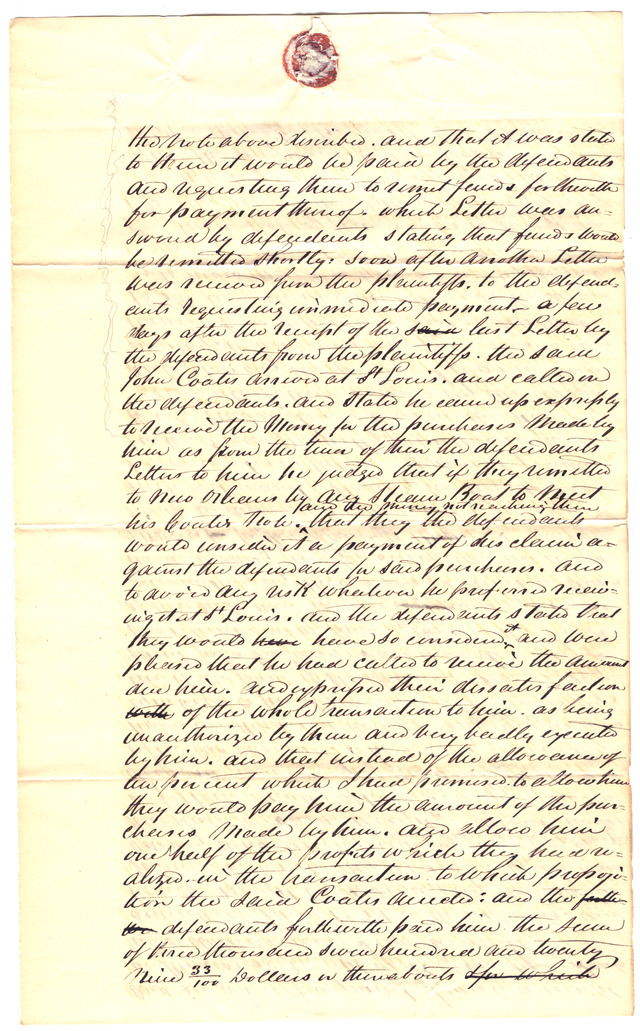 the Note above discribed. and that it was stated
to them it would be paid by the defendants
and requesting them to remit funds forthwith
for payment thereof. which Letter was an-
swered by defendents stating that funds would
be remitted shortly: soon after another Letter
was receved from the plaintiffs. to the defend-
ents requesting immediate payment. a few
days after the receipt of the said last Letter by
the defendants from the plaintiffs. the said
John Coates arrived at St Louis. and called on
the defendants. and stated he came up expressly
to receive the Money for the purchases Made by
him as from the tenor of the
 defendants
Letters to him he judged that if they remitted
to New Orleans by any Steam Boat to Meet
and the money not reaching them
his Coates Note. that they the defendents
would consider it a payment of his claim a-
gainst the defendants for said purchases. and
to avoid any risk whatever he prefered receiv-
ing it at St Louis. and the defendents stated that
they would have have so considered it and were
pleased that he had called to receive the amount
due him. and expressed their dissatisfaction
with of the whole transaction to him. as being
unauthorized by them and very badly executed
by him. and that instead of the allowance of
ten percent which I had promised to allow him
they would pay him the amount of the pur-
chases Made by him. and allow him
one half of the profits which they had re-
alized. in the transaction to which proposi-
tion the said Coates acceded: and the
defendants forthwith paid him the sum
of Nine thousand seven hundred and twenty
Nine 33/100 Dollars or thereabouts for which